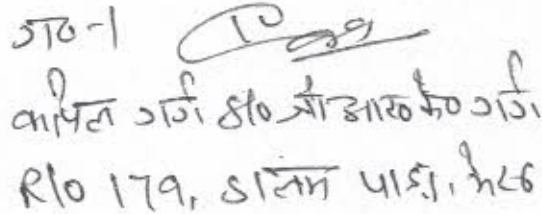 ग०-1
कपिल गर्ग S/o श्री आर० के० गर्ग
R/o 179, डालम पाड़ा, मेरठ